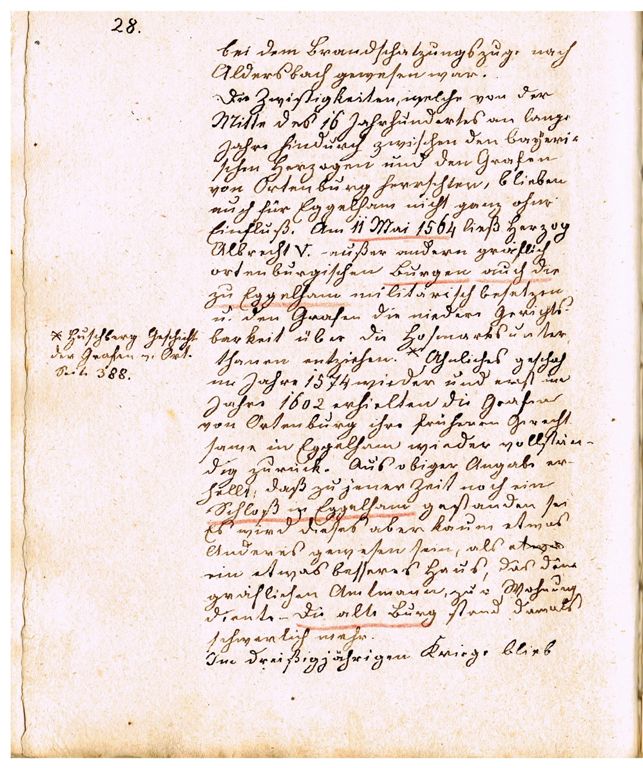 28.
bei dem Brandschatzungszuge nach
Aldersbach gewesen war.
Die Zwistigkeiten, welche von der
Mitte des 16 Jahrhundertes an lange
Jahre hindurch zwischen den bayeri-
schen Herzogen und den Grafen
von Ortenburg herrschten, blieben
auch für Eggelham nicht ganz ohne
Einfluß. Am 11 Mai 1564 ließ Herzog
Albrecht V. außer andern gräflich
ortenburgischen Burgen auch die
zu Eggelham militärisch besetzen
u. den Grafen die niedere Gerichts-
barkeit über die Hofmarksunter-
thanen entziehen. * Ähnliches geschah
im Jahre 1574 wieder und erst im
Jahre 1602 erhielten die Grafen
von Ortenburg ihre früheren Gerecht-
same in Eggelham wieder vollstän-
dig zurück. Aus obiger Angabe er-
hellt, daß zu jener Zeit noch ein
Schloß in Eggelham gestanden sei
Es wird dieses aber kaum etwas
Anderes gewesen sein, als
ein etwas besseres Haus, das dem
gräflichen Amtmann zur Wohnung
diente. Die alte Burg stand damals
schwerlich mehr.
Im dreißigjährigen Kriege blieb
* Huschberg Geschicht
der Grafen v. Ort.
Seite 388.